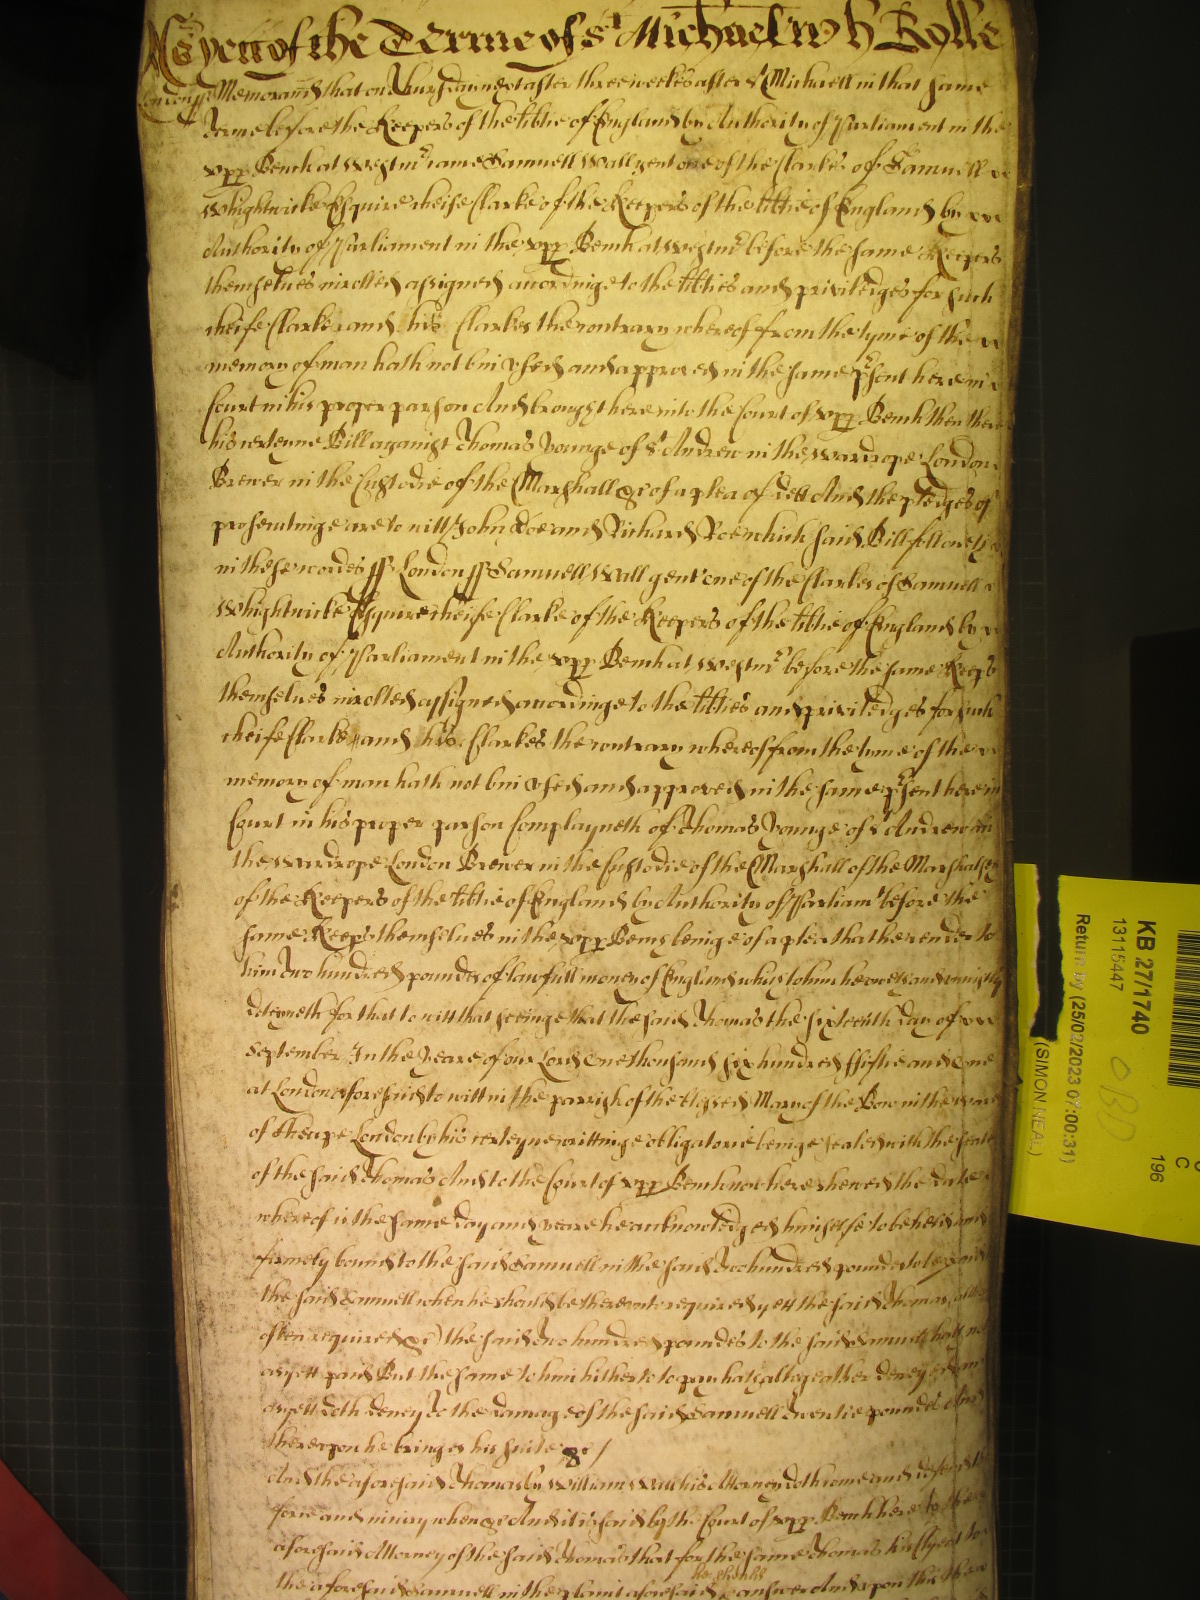 As yett of the Terme of St Michael wth Rolle
London ss Memorand that on Thursday next after three weekes after St Michaell in that same
Terme before the Keepers of the libtie of England by Authority of Parliament in the
upp Bench at Westmr came Samuell Wall gent one of the Clarkes of Samuell
Whightwicke Esquire cheife Clarke of the Keepers of the libtie of England by
Authority of Parliament in the upp Bench at Westmr before the same Keepers
themselves inrolled assigned accordinge to the libties and priviledges for such
cheife Clarke and his Clarkes the contrary whereof from the tyme of the
memory of man hath not bin used and approved in the same psent here in
Court in his proper parson And brought here into the Court of upp Bench then there
his certeyne Bill against Thomas Younge of St Andrew in the Wardrope London
Brewer in the Custodie of the Marshall &c of a plea of dett And the pledges of
prosecutinge are to witt John Doe and Richard Roe which said Bill followeth
in these wordes ss London ss Samuell Wall gent one of the Clarkes of Samuell
Whightwicke Esquire cheife Clarke of the Keepers of the libtie of England by
Authority of Parliament in the upp Bench at Westmr before the same Keeps
themselves inrolled assigned accordinge to the libties and priviledges for such
cheife Clarke and his Clarkes the contrary whereof from the tyme of the
memory of man hath not bin used and approved in the same psent here in
Court in his proper parson Complayneth of Thomas Younge of St Andrew in
the Wardrope London Brewer in the Custodie of the Marshall of the Marshalsey
of the Keepers of the libtie of England by Authority of Parliamt before the
same Keeps themselves in the upp Bench beinge of a plea that he render to
him Two hundred poundes of lawfull money of England which to him he owes and uniustly
deteyneth for that to witt that seeinge that the said Thomas the sixteenth day of
September In the Yeare of our Lord One thousand six hundred fiftie and One
at London aforesaid to witt in the parrish of the blessed Mary of the Bow in the ward
of Cheape London by his certeyne writtinge obligatorie beinge sealed with the seale
of the said Thomas And to the Court of upp Bench now here shewed the date
whereof is the same day and yeare he acknowledged himselfe to be held and
firmely bound to the said Samuell in the said Two hundred poundes to be paid
the said Samuell when he should be thereunto required yett the said Thomas
often required &c) the said Two hundred poundes to the said Samuell hath not
as yett paid But the same to him hitherto to pay hath altogeather denyed and
as yett doth deney To the damage of the said Samuell Twentie poundes And
thereupon he bringes his suite &c /
And the aforesaid Thomas by William Wall his Attorney doth come and defend the
force and iniury when &c And it is said by the Court of upp Bench here to the
aforesaid Attorney of the said Thomas that for the same Thomas his Clyent to
he should
the aforesaid Samuell in the plaint aforesaid answer And upon this the
KB 27/1740
13115447
Return by (25/02/2023 07:00:31)
(SIMON NEAL)
OBD
C
196